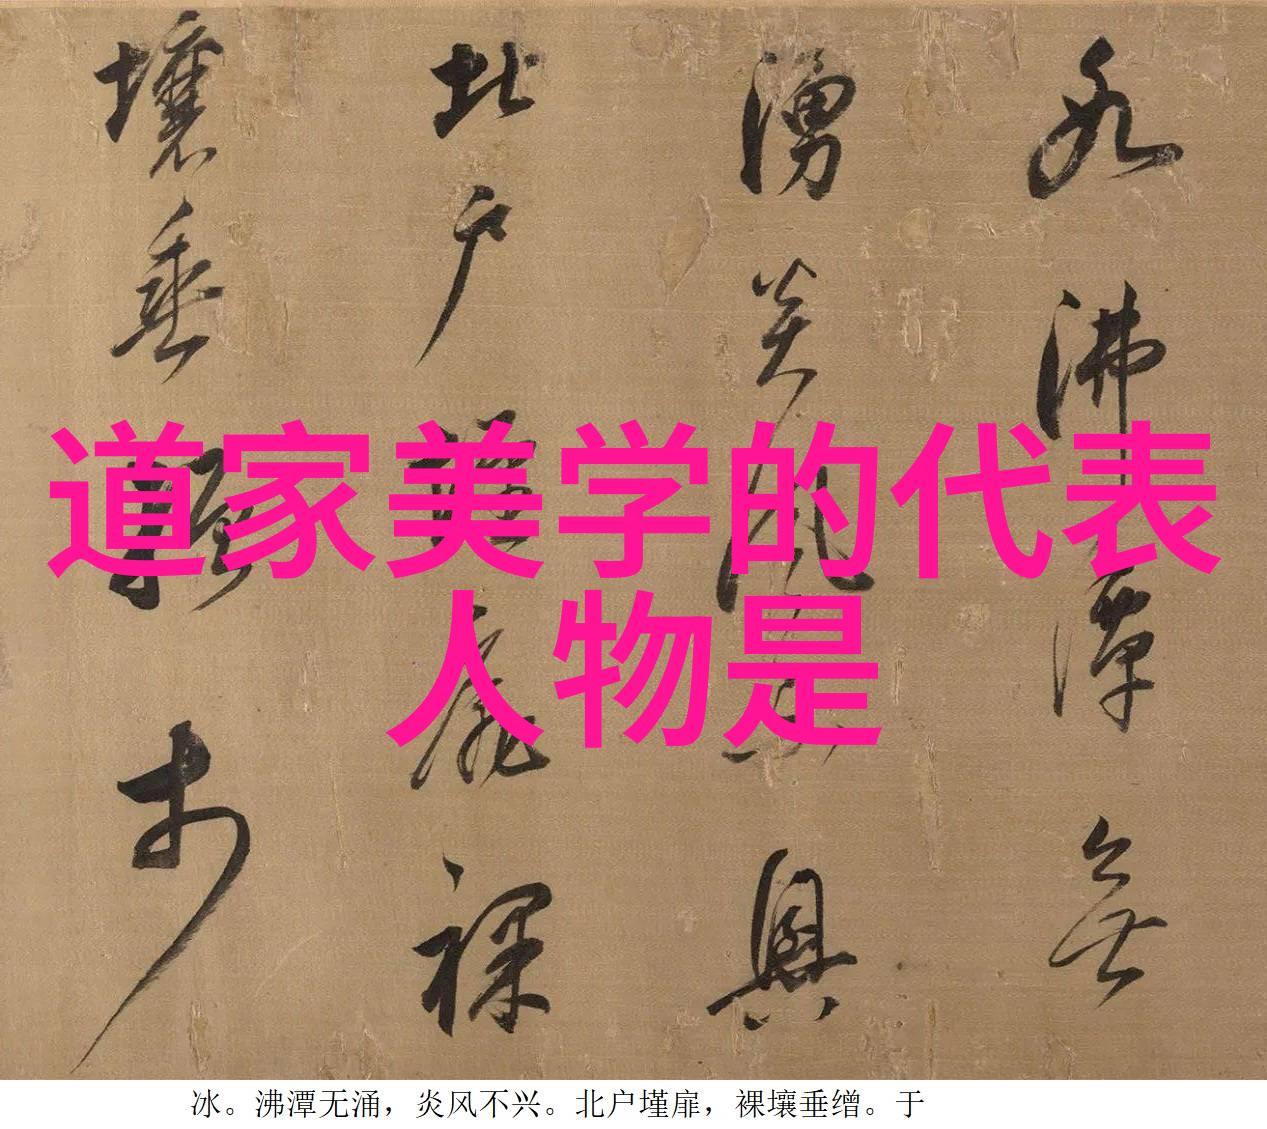 冰
沸潭无
涌炎风不兴
北户墐扉裸
壤垂缯于
道家美学的代表
人物是
冰。沸潭无涌，炎风不兴。北户墐扉，裸壤垂缯。于